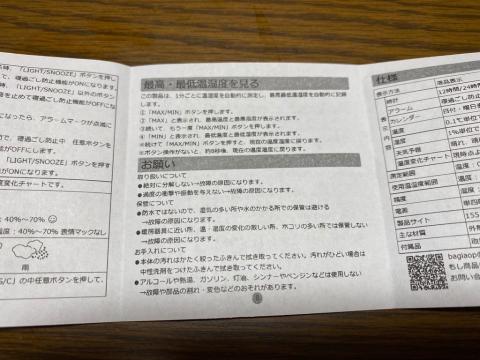 時、「LIGHT/SNOOZE」ボタンを押し
で、寝過ごし防止機能がONになります。
「LIGHT/SNOOZE」以外のボタン
音を止めて寝過ごし防止機能がOFFにな
になったら、アラームマークが点滅に
で、寝過ごし防止中 任意ボタンを
能がOFFにします。
「LIGHT/SNOOZE」ボタンを押す
変化チャートです。
：40%～70%
：40%～70% 表情マックなし
雨
/℃」の中任意ボタンを押して、
最高・最低温湿度を見る
この製品は、1分ごとに温湿度を自動的に測定し、最高最低温湿度を自動的に記録
します。
①「MAX/MIN」ボタンを押します。
②「MAX」と表示され、最高温度と最高湿度が表示されます。
③続いて、もう一度「MAX/MIN」ボタンを押します。
④「MIN」と表示され、最低温度と最低湿度が表示されます。
※続けて「MAX/MIN」ボタンを押すと、現在の温湿度画面に戻ります。
※ボタン操作がないと、約8秒後、現在の温湿度に戻ります。
お願い
取り扱いについて
●絶対に分解しない→故障の原因になります。
●過度の衝撃や振動を与えない→故障の原因になります。
保管について
●防水ではないので、湿気の多い所や水のかかる所での保管は避ける
→故障の原因になります。
●暖房器具に近い所、温・湿度の変化の激しい所、ホコリの多い所では保管しない
→故障の原因になります。
お手入れについて
●本体の汚れはかたく絞ったふきんで拭き取ってください。汚れがひどい場合は
中性洗剤をつけたふきんで拭き取ってください。
●アルコールや熱湯、ガソリン、灯油、シンナーやベンジンなどは使用しない
→故障や部品の割れ・変色などのおそれがあります。
8
仕様
表示方法 液晶表示
表示内容
時計 12時間/24時間
アラーム 寝過ごし防
カレンダー 日付・曜日
温度 0.1℃単位で
湿度 1%単位で
天気予報
温度変化チャート 現時点よ
測定範囲 温度
使用温湿度範囲 温度
精度 温度
電源 単四
製品サイト 155
主な材質 外
付属品 取
bagiaop
もし商品
お問い合